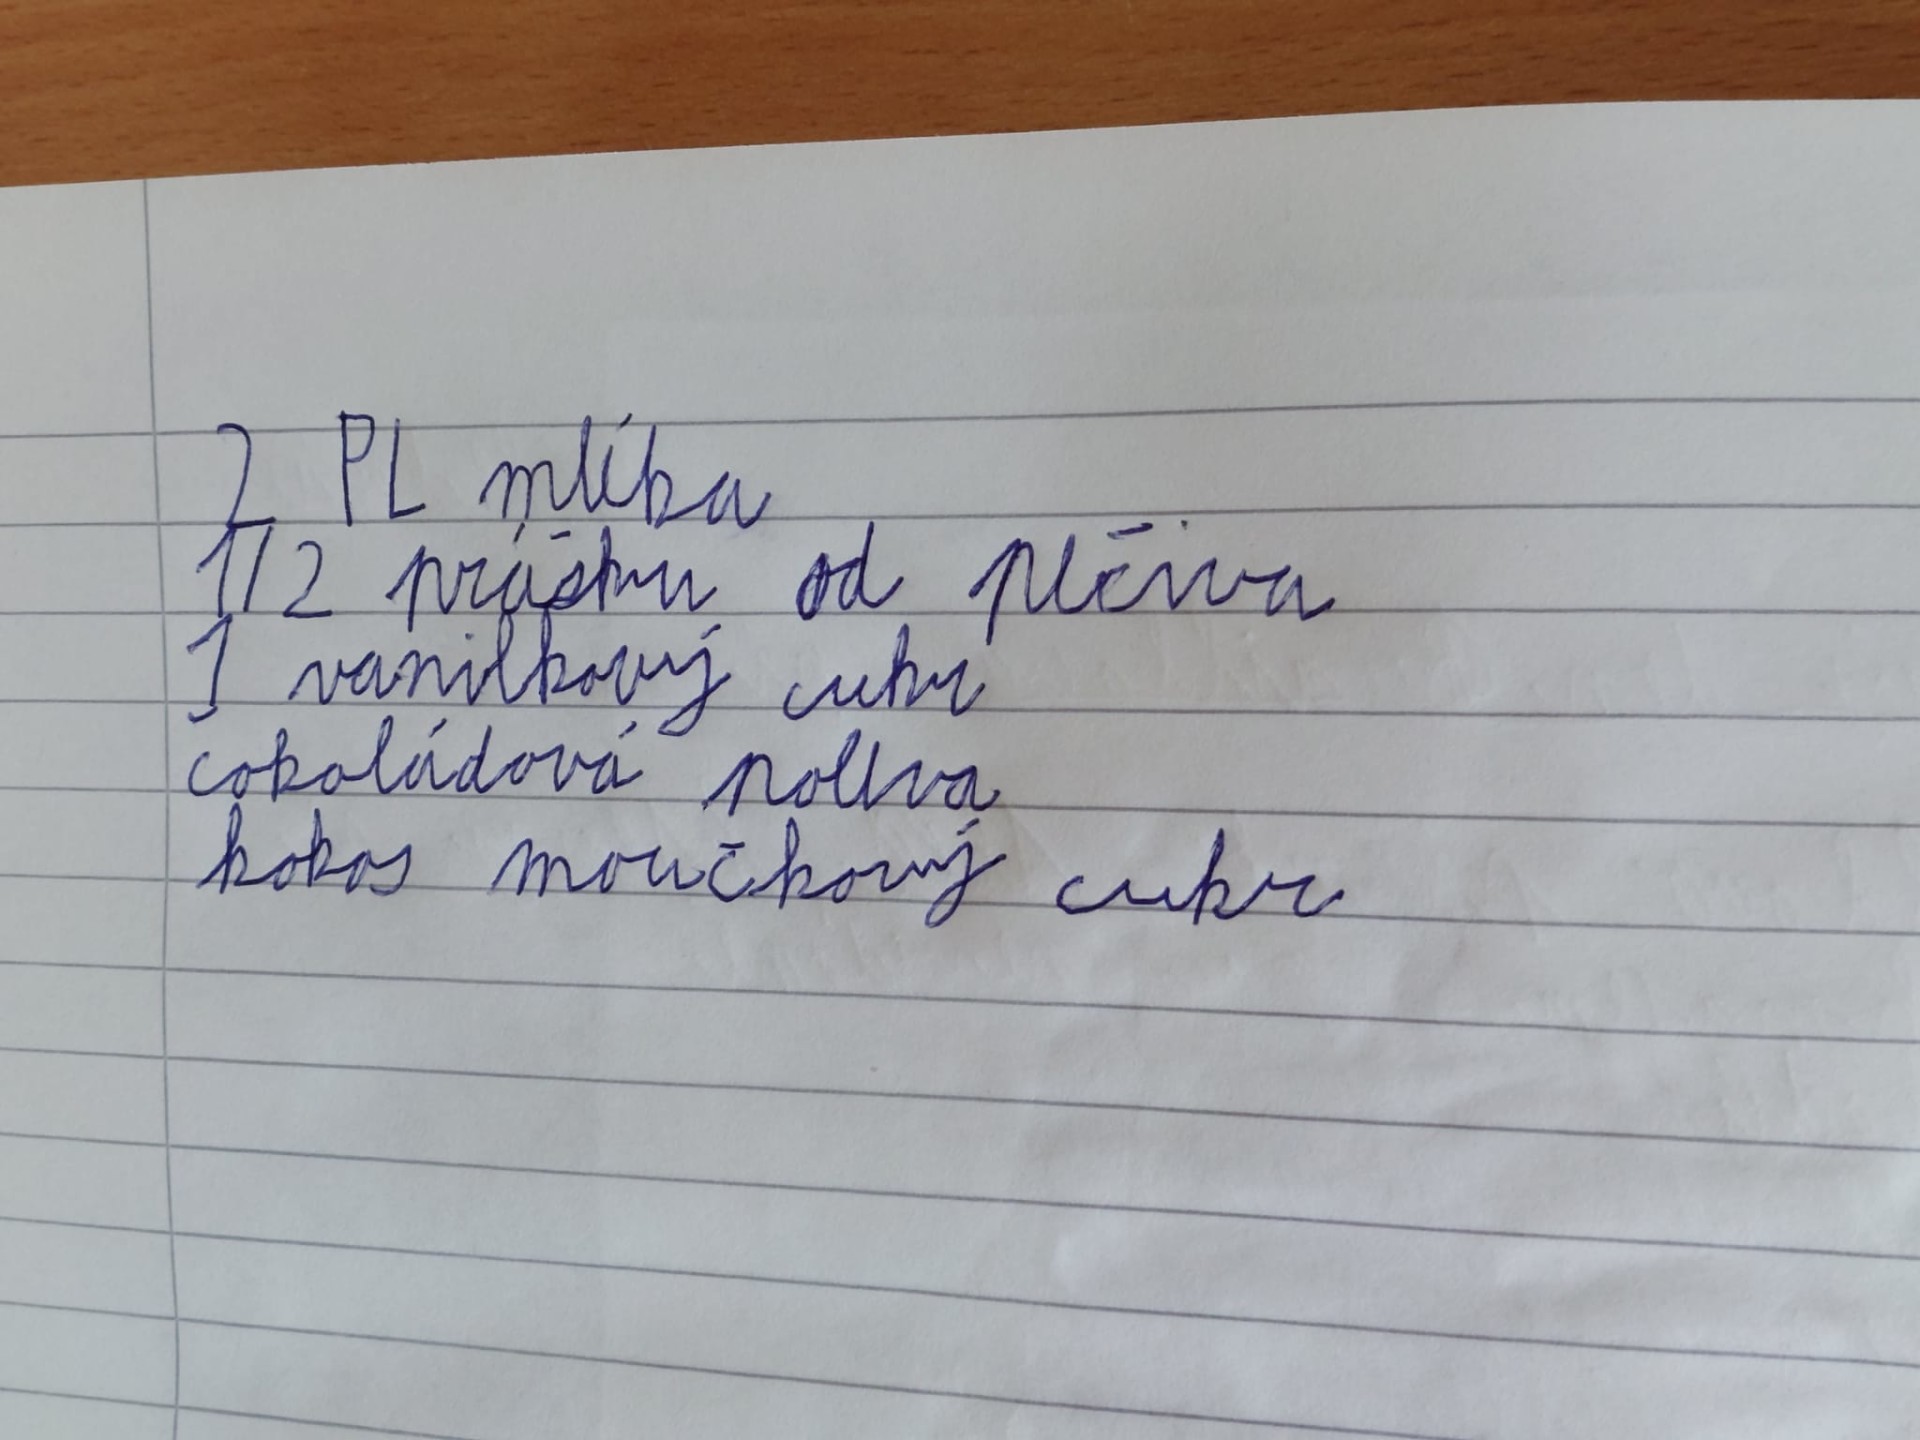 2 PL mlíka
1/2 prášku od pečiva
1 vanilkový cukr
cokoládová poleva
kokos moučkový cukr